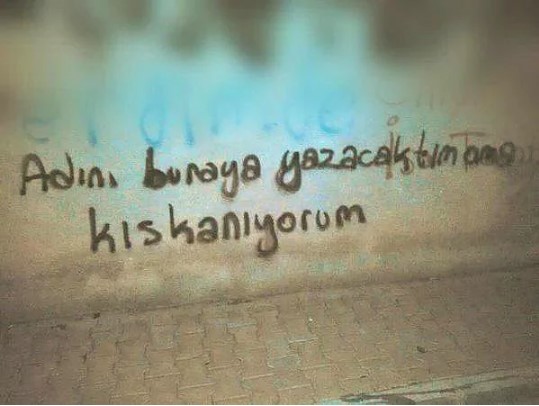 Adını buraya yazacaktım ama
kıskanıyorum